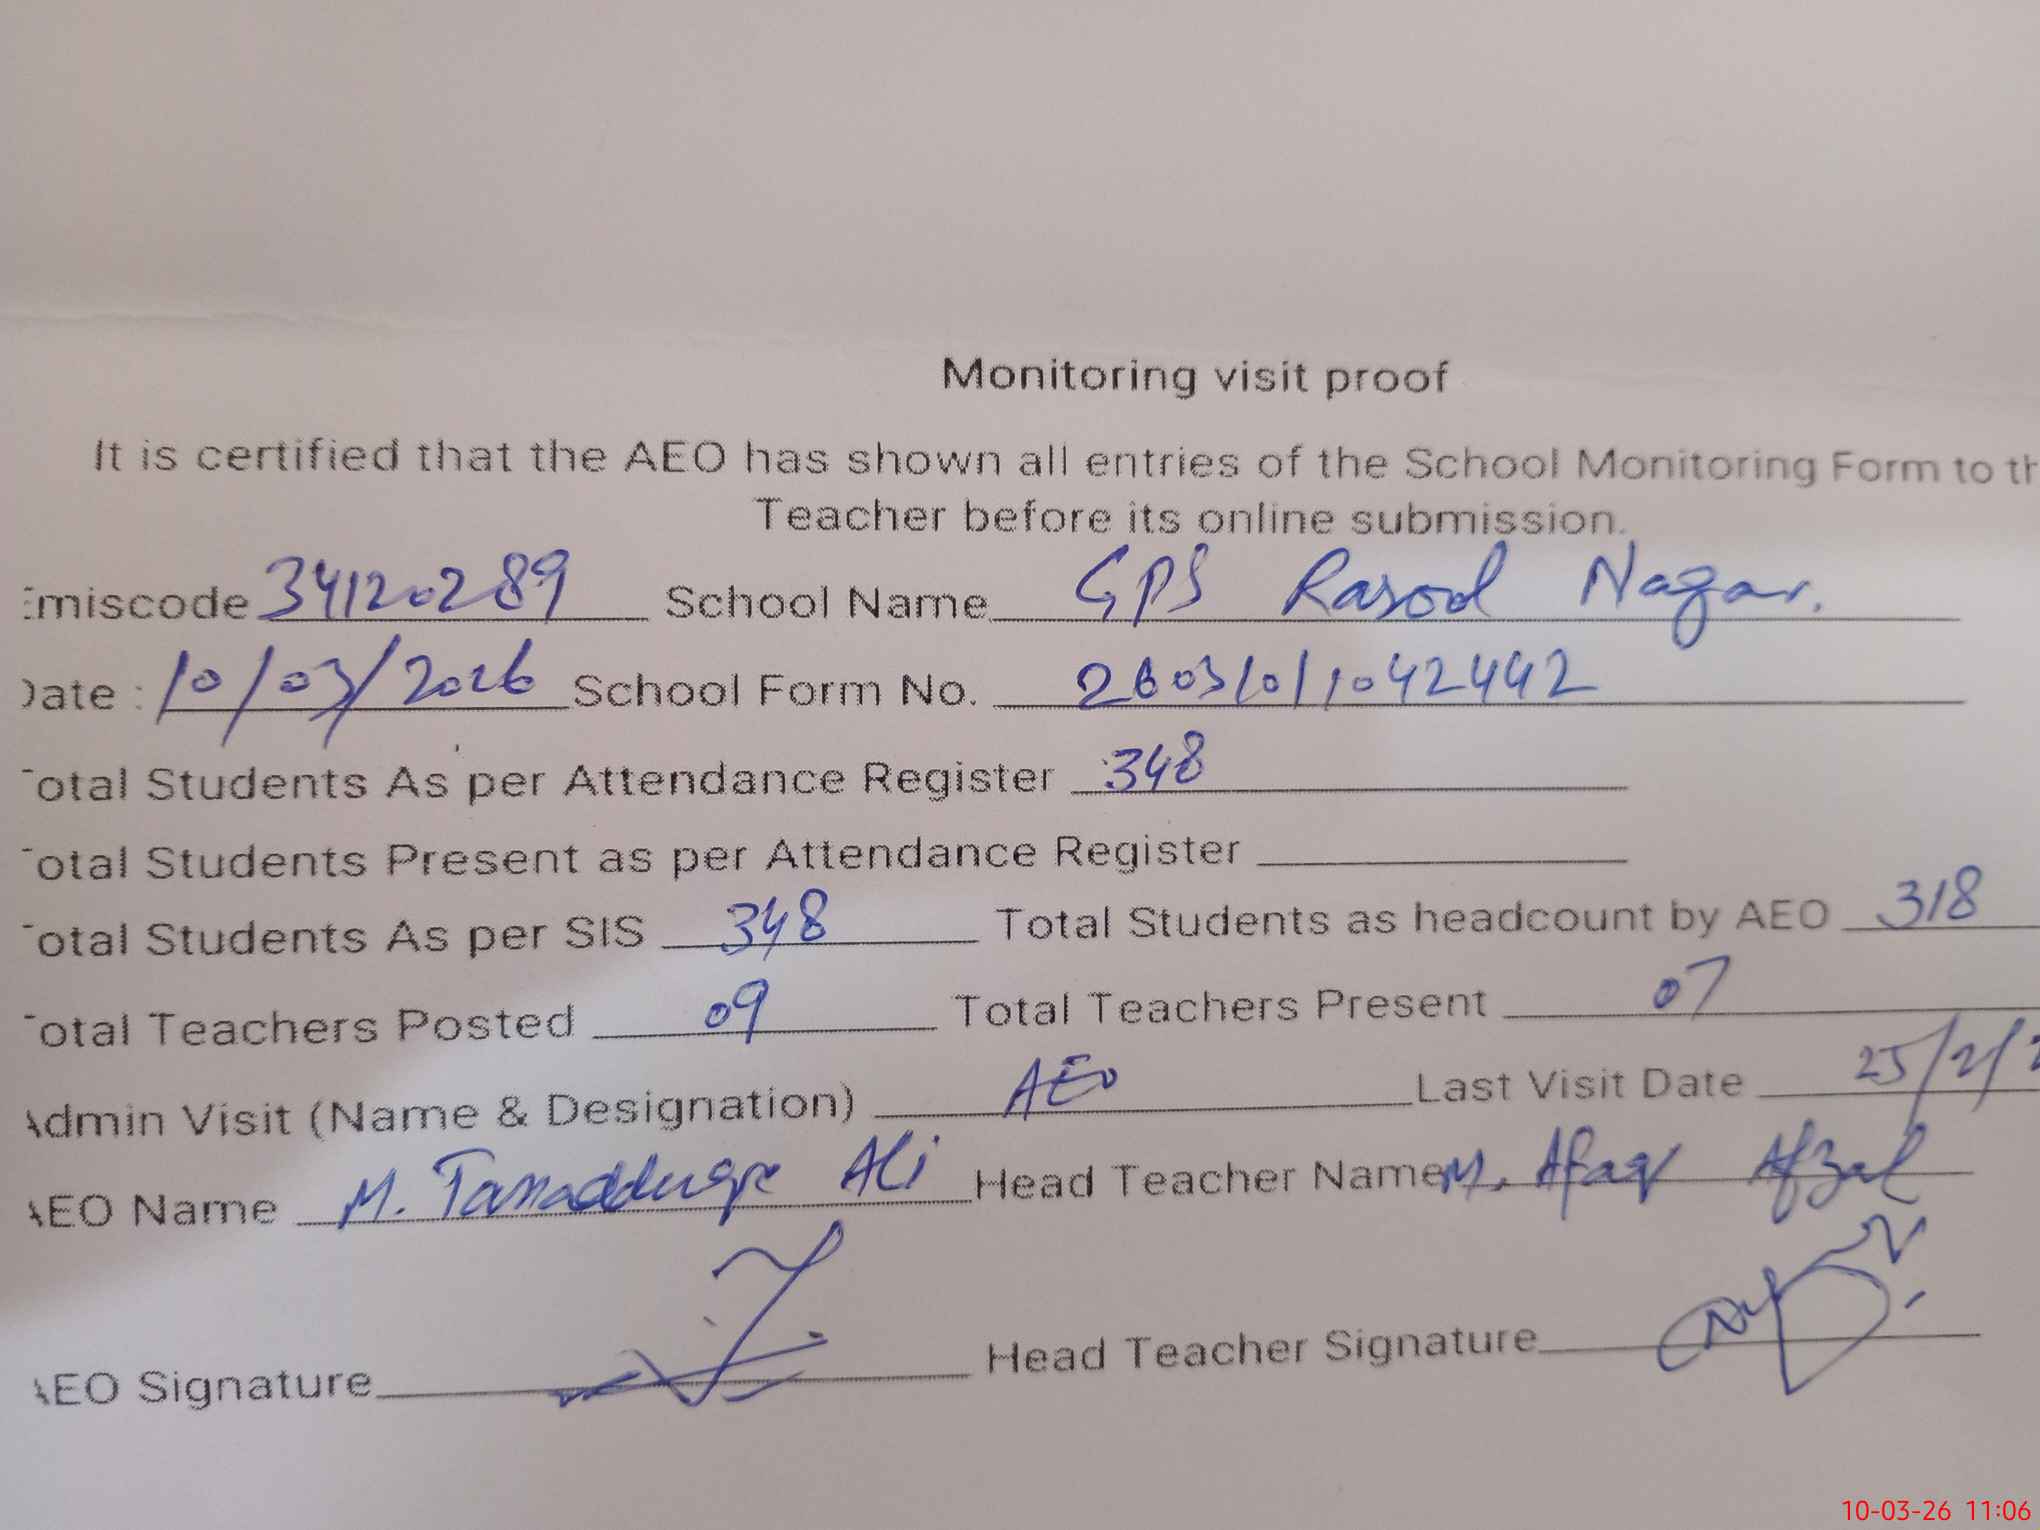 Monitoring visit proof
It is certified that the AEO has shown all entries of the School Monitoring Form to th
Teacher before its online submission.
Emiscode 34120289 School Name GPS Rasool Nagar.
Date : 10/03/2026 School Form No. 26031011042442
Total Students As per Attendance Register 348
Total Students Present as per Attendance Register
Total Students As per SIS 348 Total Students as headcount by AEO 318
Total Teachers Posted 09 Total Teachers Present 07
Admin Visit (Name & Designation) AEO Last Visit Date 25/2/2
AEO Name M. Tasadduque Ali Head Teacher Name M. Afaq Afzal
AEO Signature Head Teacher Signature
10-03-26 11:06